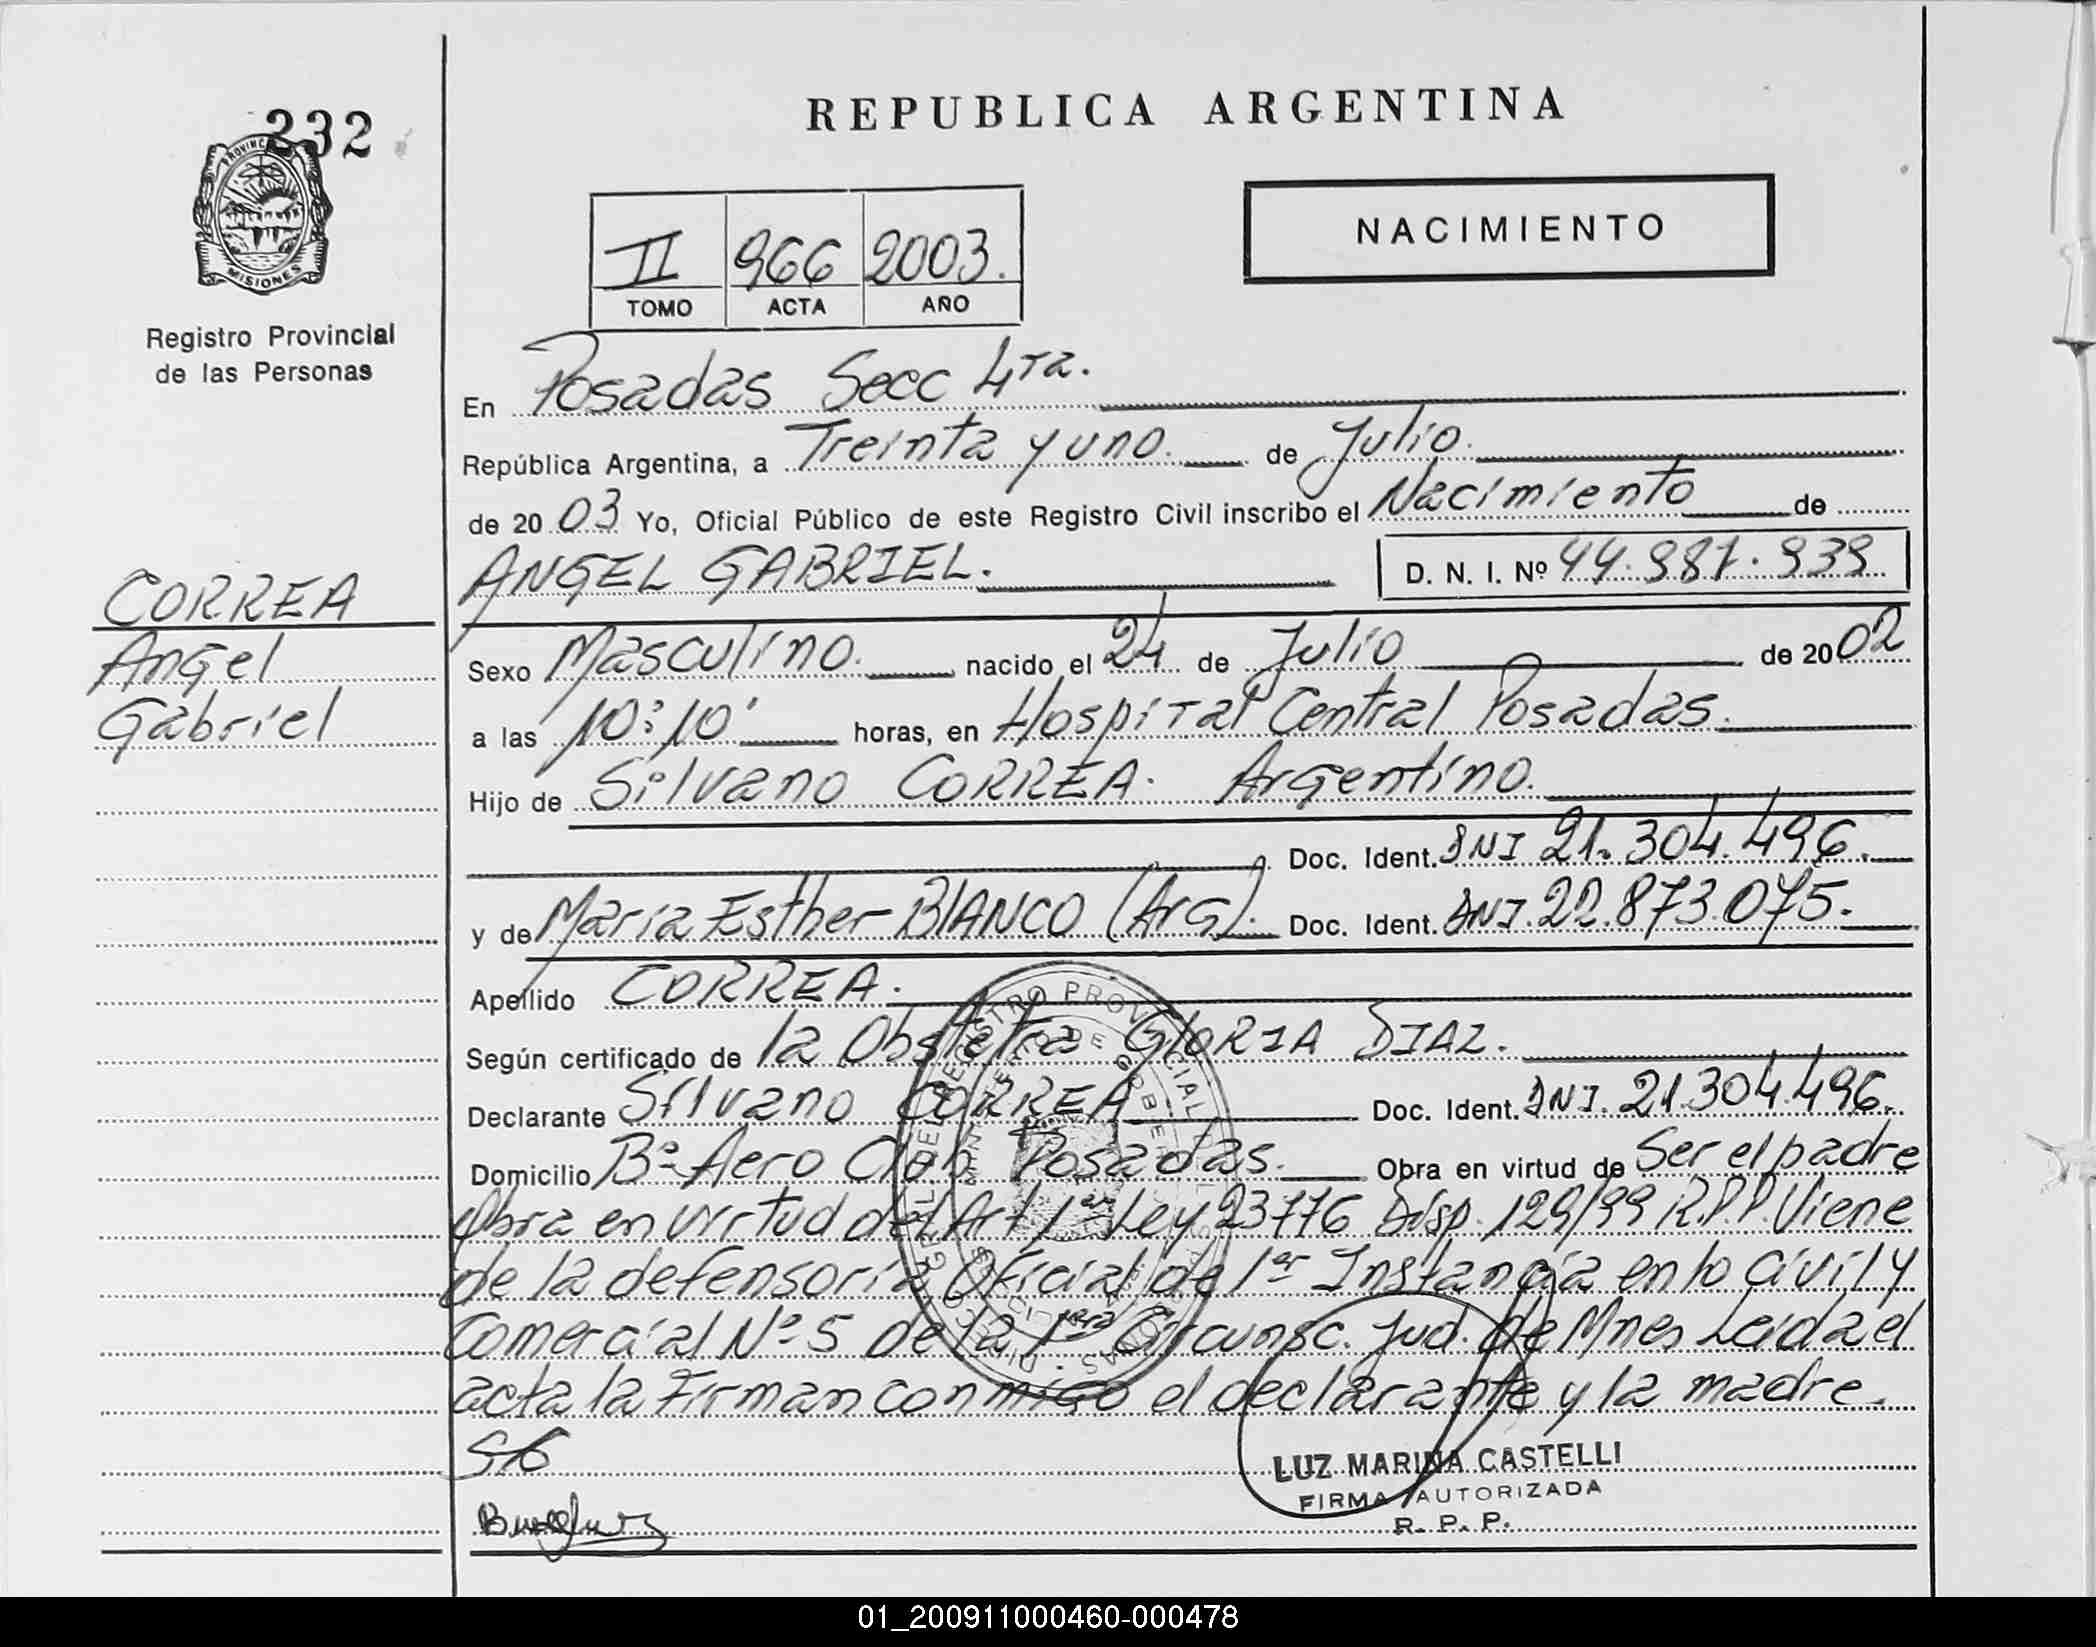 232
PROVINCIA
MISIONES
Registro Provincial
de las Personas
CORREA
Angel
Gabriel
REPUBLICA ARGENTINA
NACIMIENTO
II 966 2003.
TOMO ACTA AÑO
En Posadas Secc 4ta.
República Argentina, a Treinta y uno. de Julio.
de 2003 Yo, Oficial Público de este Registro Civil inscribo el Nacimiento de
ANGEL GABRIEL. D. N. I. Nº 44.987.939
Sexo Masculino. nacido el 24 de Julio de 2002
a las 10:10' horas, en Hospital Central Posadas.
Hijo de Silvano CORREA. Argentino.
Doc. Ident. DNI 21.304.496.
y de Maria Esther BLANCO (Arg). Doc. Ident. DNI. 22.873.075.
Apellido CORREA.
Según certificado de la Obstetra GLORIA DIAZ.
Declarante Silvano CORREA Doc. Ident. DNI. 21.304.496.
Domicilio Bº Aero Club Posadas. Obra en virtud de Ser el padre
Obra en virtud del Art 1º Ley 23776 Disp. 129/99 R.P.P. Viene
de la defensoria Oficial de 1er Instancia en lo Civil y
Comercial Nº 5 de la 1ra Circunsc. Jud. de Mnes Leida el
acta la Firman conmigo el declarante y la madre.
LUZ MARINA CASTELLI
FIRMA AUTORIZADA
R. P. P.
01_200911000460-000478